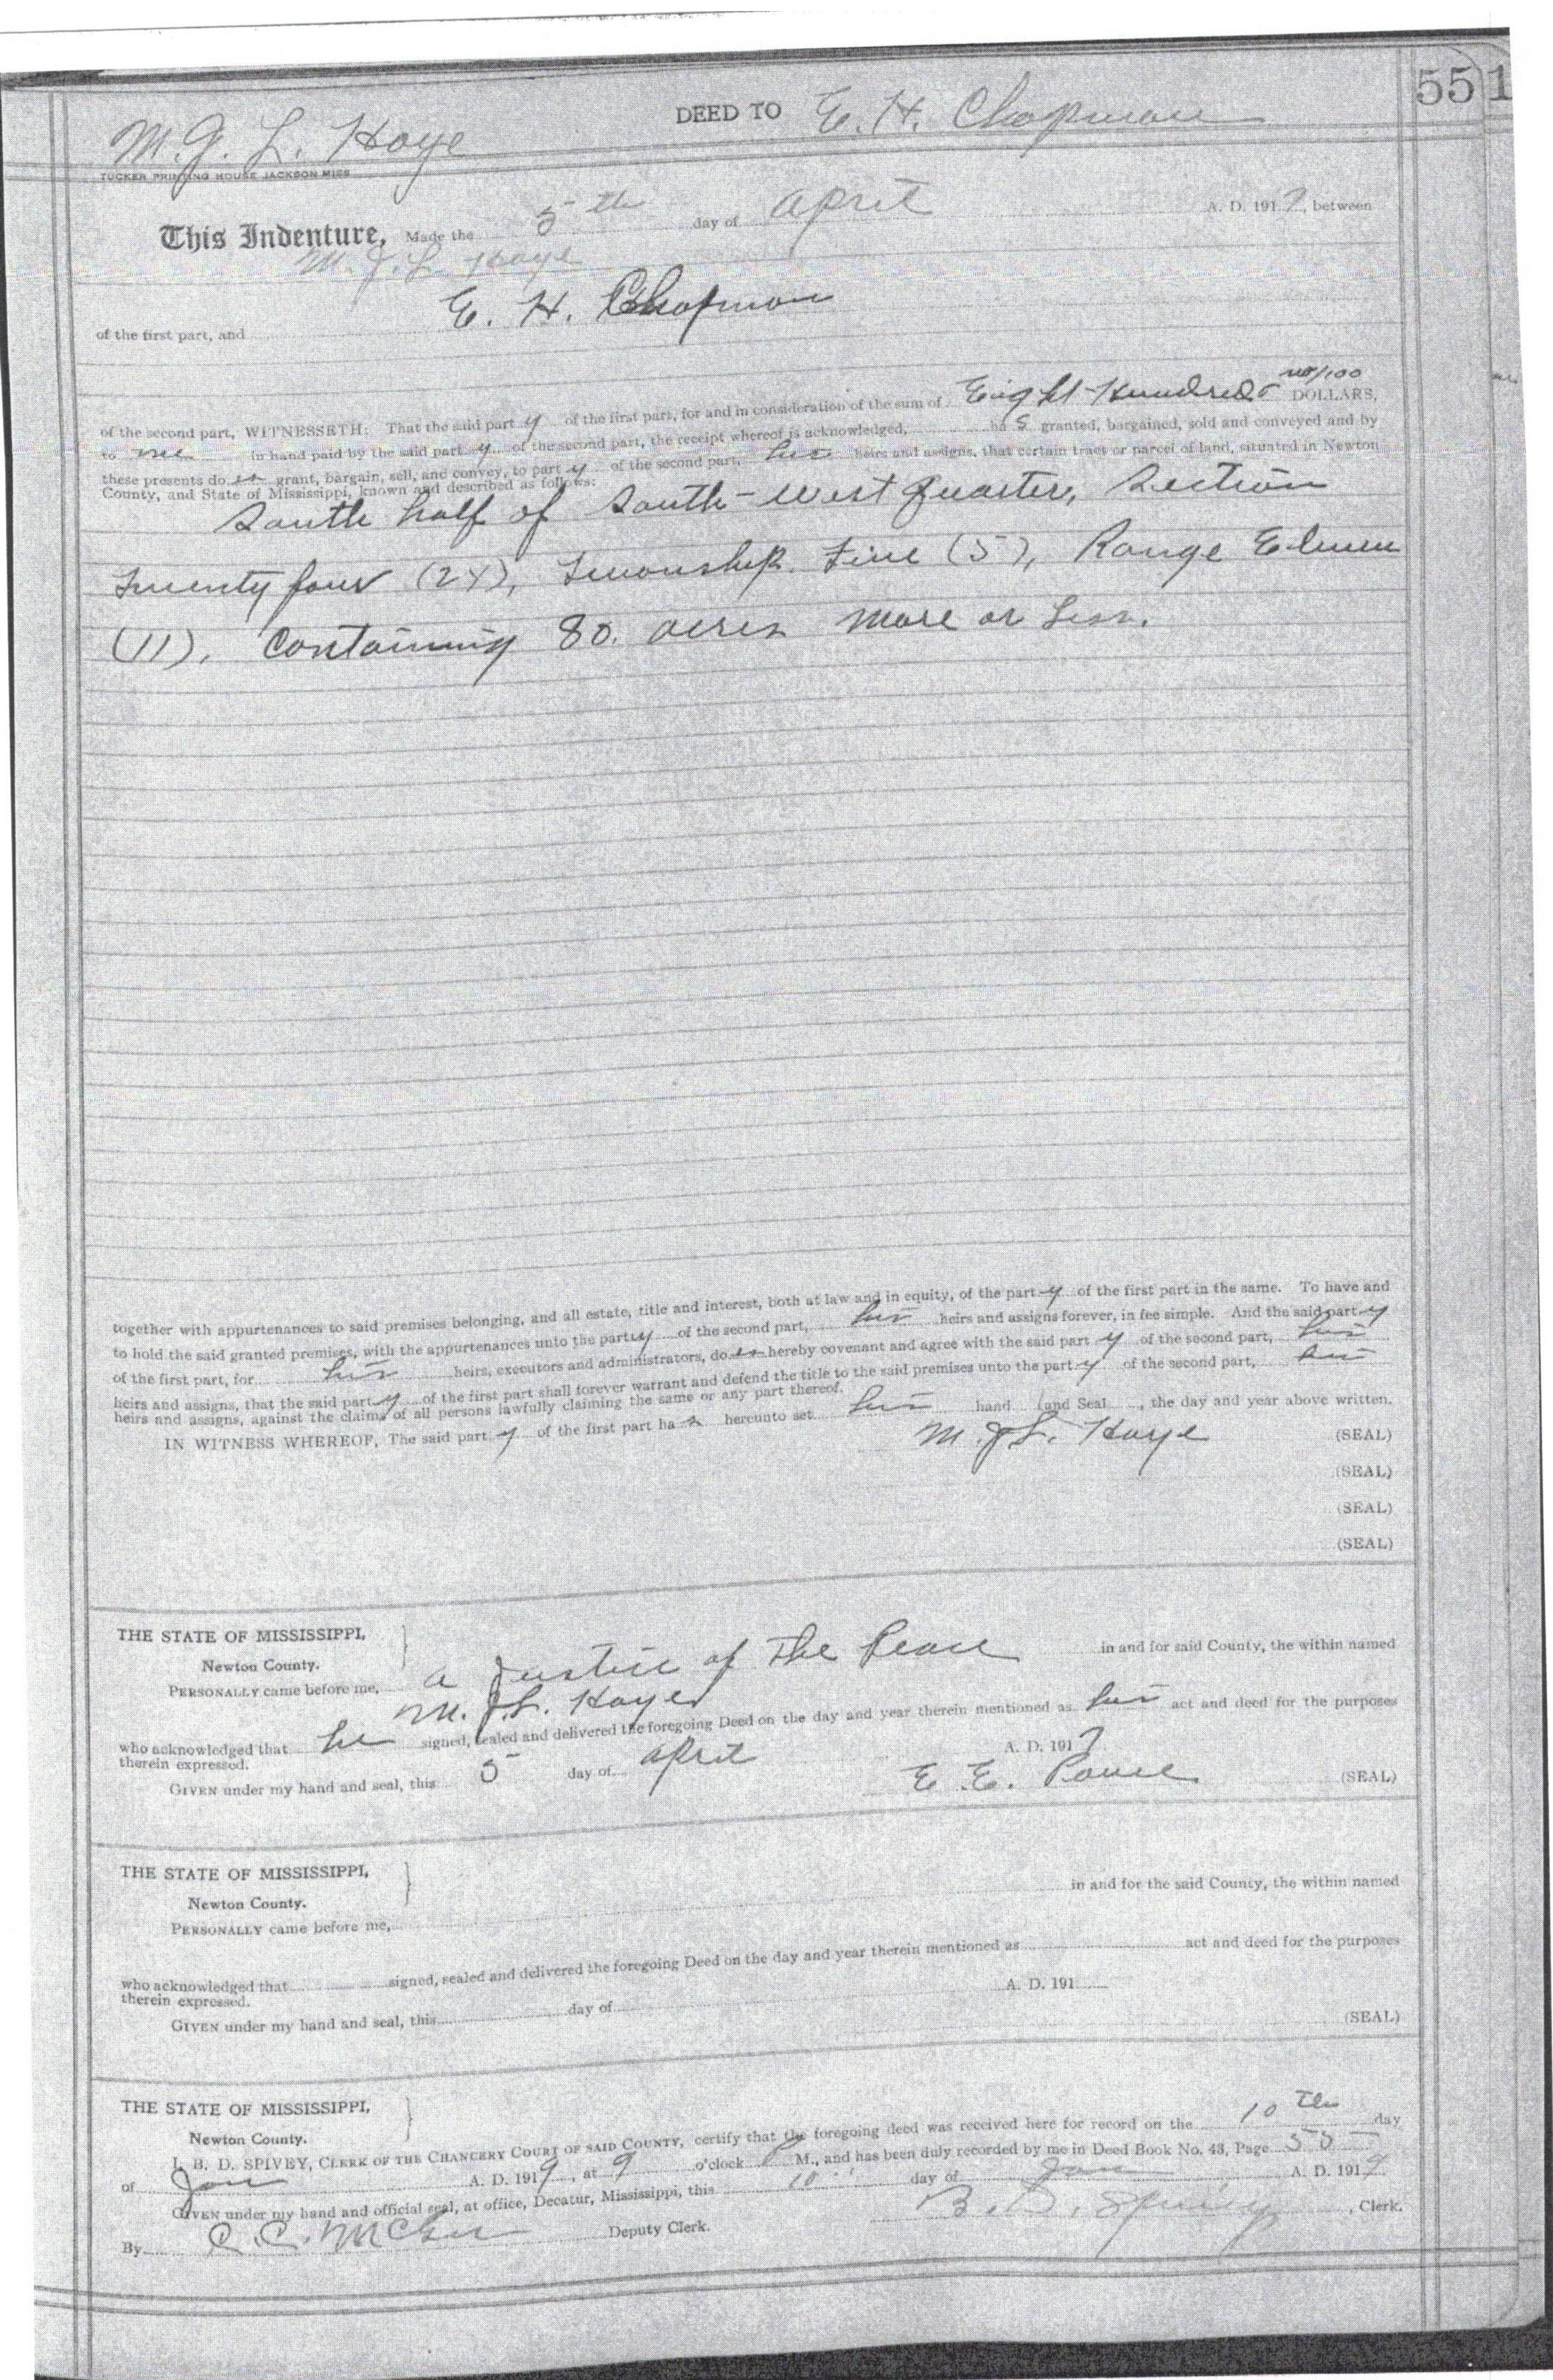 551
M. J. L. Hoye DEED TO E. H. Chapman
TUCKER PRINTING HOUSE JACKSON MISS
This Indenture, Made the 5th day of April A. D. 1917, between
M. J. L. Hoye
of the first part, and E. H. Chapman
of the second part, WITNESSETH: That the said party of the first part, for and in consideration of the sum of Eight Hundred & no/100 DOLLARS,
to me in hand paid by the said party of the second part, the receipt whereof is acknowledged, ha s granted, bargained, sold and conveyed and by
these presents do es grant, bargain, sell, and convey, to party of the second part, his heirs and assigns, that certain tract or parcel of land, situated in Newton
County, and State of Mississippi, known and described as follows:
South half of South-West Quarter, Section
Twenty four (24), Township Five (5), Range Eleven
(11). Containing 80. acres more or less.
together with appurtenances to said premises belonging, and all estate, title and interest, both at law and in equity, of the party of the first part in the same. To have and
to hold the said granted premises, with the appurtenances unto the party of the second part, his heirs and assigns forever, in fee simple. And the said party
of the first part, for his heirs, executors and administrators, do es hereby covenant and agree with the said party of the second part, his
heirs and assigns, that the said party of the first part shall forever warrant and defend the title to the said premises unto the party of the second part, his
heirs and assigns, against the claims of all persons lawfully claiming the same or any part thereof.
IN WITNESS WHEREOF, The said party of the first part ha s hereunto set his hand and Seal, the day and year above written.
M. J. L. Hoye (SEAL)
(SEAL)
(SEAL)
(SEAL)
THE STATE OF MISSISSIPPI,
Newton County.
PERSONALLY came before me, a Justice of the Peace in and for said County, the within named
M. J. L. Hoye
who acknowledged that he signed, sealed and delivered the foregoing Deed on the day and year therein mentioned as his act and deed for the purposes
therein expressed.
GIVEN under my hand and seal, this 5 day of April A. D. 1917
E. E. (SEAL)
THE STATE OF MISSISSIPPI,
Newton County.
PERSONALLY came before me, in and for the said County, the within named
who acknowledged that signed, sealed and delivered the foregoing Deed on the day and year therein mentioned as act and deed for the purposes
therein expressed.
GIVEN under my hand and seal, this day of A. D. 191
(SEAL)
THE STATE OF MISSISSIPPI,
Newton County.
I, B. D. SPIVEY, CLERK OF THE CHANCERY COURT OF SAID COUNTY, certify that the foregoing deed was received here for record on the 10th day
of Jan A. D. 1919, at 9 o'clock M., and has been duly recorded by me in Deed Book No. 43, Page 55
GIVEN under my hand and official seal, at office, Decatur, Mississippi, this 10 day of Jan A. D. 1919
B. D. Spivey, Clerk.
By C. C. Deputy Clerk.